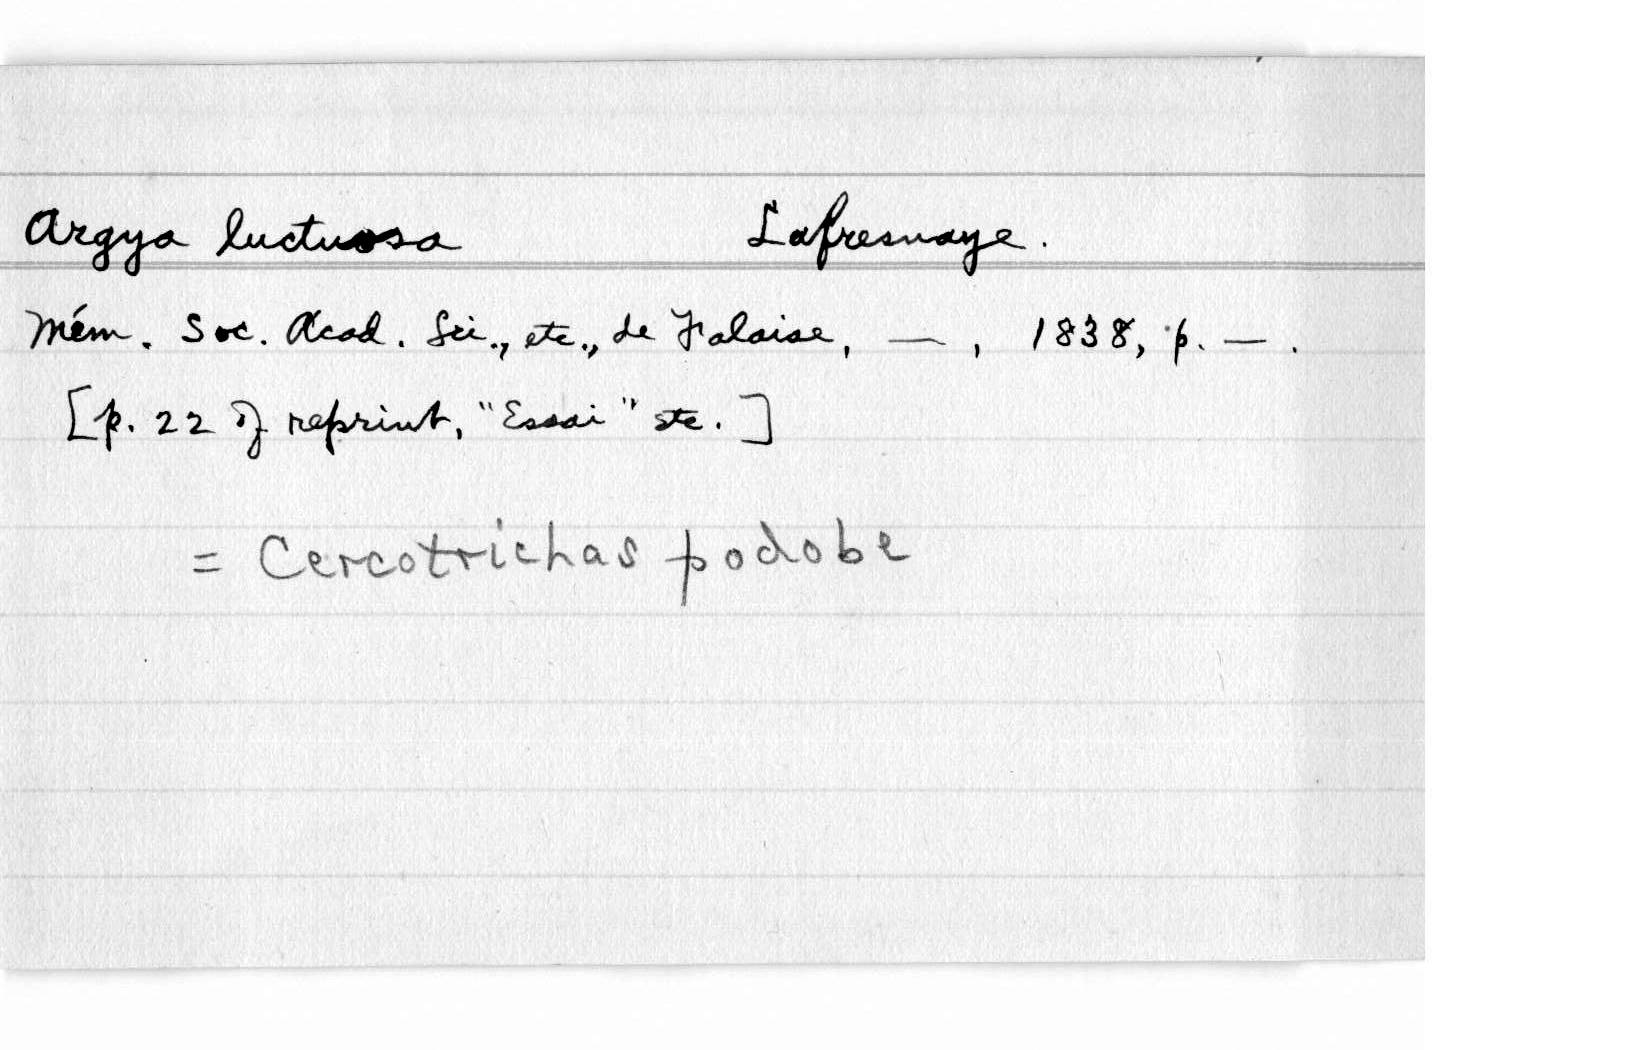 Argya luctuosa Lafresnaye.
Mém. Soc. Acad. Sci., etc., de Falaise, — , 1838, p. — .
[p. 22 of reprint, "Essai" etc.]
= Cercotrichas podobe